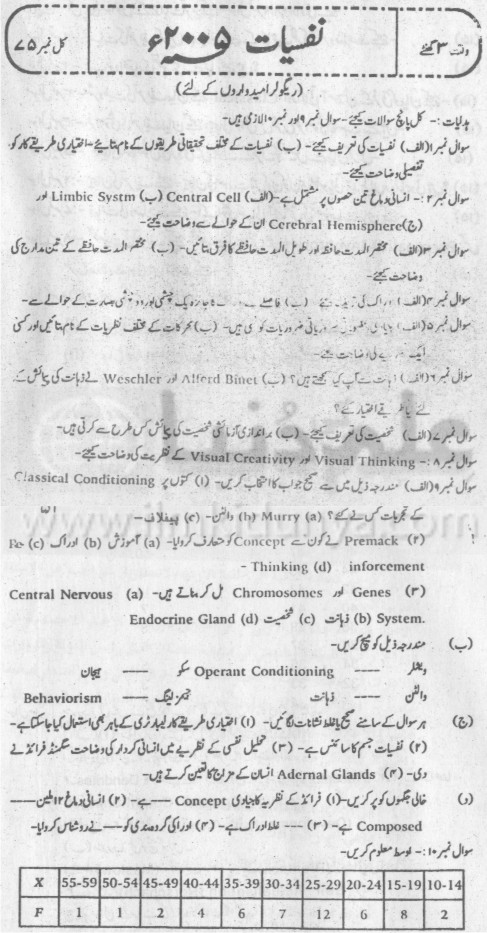 وقت ۳ گھنٹے
نفسیات ۲۰۰۵ء
کل نمبر ۷۵
(ریگولر امیدواروں کے لئے)
ہدایات :- کل پانچ سوالات کیجئے- سوال نمبر ۹ اور نمبر ۱۰ لازمی ہیں-
سوال نمبر ۱ (الف) نفسیات کی تعریف کیجئے- (ب) نفسیات کے مختلف تحقیقاتی طریقوں کے نام بتایئے- اختیاری طریقے کار کو
تفصیلی وضاحت کیجئے-
سوال نمبر ۲ :- انسانی دماغ تین حصوں پر مشتمل ہے- (الف) Central Cell (ب) Limbic Systm اور
(ج) Cerebral Hemisphere ان کے حوالے سے وضاحت کیجئے-
سوال نمبر ۳ (الف) مختصر المدت حافظہ اور طویل المدت حافظے کا فرق بتائیں- (ب) مختصر المدت حافظے کے تین مدارج کی
وضاحت کیجئے-
سوال نمبر ۴ (الف) ادراک کی کیجئے (ب) فاصلے جائزہ یک چشمی اور دو چشمی بصارت کے حوالے سے-
سوال نمبر ۵ (الف) ضروریات کونسی ہیں- (ب) محرکات کے مختلف نظریات کے نام بتائیں اور کسی
ایک کی وضاحت کیجئے-
سوال نمبر ۶ (الف) ذہانت سے آپ کیا سمجھتے ہیں؟ (ب) Alferd Binet اور Weschler نے ذہانت کی پیمائش کے
لئے کیا طریقے اختیار کئے؟
سوال نمبر ۷ (الف) شخصیت کی تعریف کیجئے- (ب) براندازی آزمائشی شخصیت کی پیمائش کس طرح سے کرتی ہیں-
سوال نمبر ۸ :- Visual Thinking اور Visual Creativity کے نظریت کی وضاحت کیجئے-
سوال نمبر ۹ (الف) مندرجہ ذیل میں سے صحیح جواب کا انتخاب کریں- (۱) کتوں پر Classical Conditioning
کے تجربات کس نے کئے؟ (a) Murry (b) واٹسن- (c) پیولاف-
(۲) Premack نے کون سے Concept کو متعارف کروایا- (a) آموزش (b) ادراک (c) Re-
inforcement (d) Thinking -
(۳) Genes اور Chromosomes مل کر بناتے ہیں- (a) Central Nervous
System. (b) ذہانت (c) شخصیت (d) Endocrine Gland
(ب) مندرجہ ذیل کو میچ کریں-
ویشلر ---- Operant Conditioning سکو ---- ہیجان
واٹسن ---- ذہانت جیمز لینگ ---- Behaviorism
(ج) ہر سوال کے سامنے صحیح یا غلط نشانات لگائیں- (۱) اختیاری طریقے کار لیبارٹری کے باہر بھی استعمال کیا جاسکتا ہے-
(۲) نفسیات جسم کا سائنس ہے- (۳) تحلیل نفسی کے نظریے میں انسانی کردار کی وضاحت سگمنڈ فرائڈ نے
دی- (۴) Adernal Glands انسان کے مزاج کا تعین کرتے ہیں-
(د) خالی جگہوں کو پر کریں- (۱) فرائڈ کے نظریہ کا بنیادی Concept ---- ہے- (۲) انسانی دماغ ۱۲ ملین ----
Composed ہے- (۳) ---- غلط ادراک ہے- (۴) ادراکی گروہ بندی کو ---- نے روشناس کروایا-
سوال نمبر ۱۰ :- اوسط معلوم کریں-
X 55-59 50-54 45-49 40-44 35-39 30-34 25-29 20-24 15-19 10-14
F 1 1 2 4 6 7 12 6 8 2